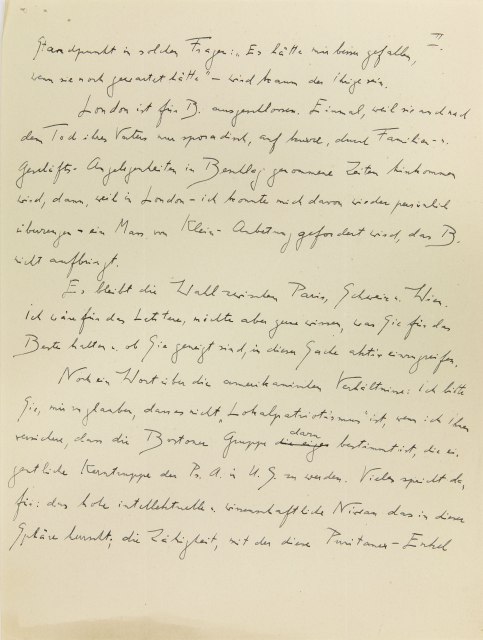 II.
Standpunkt in solchen Fragen: „Es hätte mir besser gefallen,
wenn sie noch gewartet hätte" – wird kaum der Ihrige sein.
London ist für B. ausgeschlossen. Einmal, weil sie auch nach
dem Tod ihres Vaters nur sporadisch, auf kurze, durch Familien- u.
Geschäfts-Angelegenheiten in Beschlag genommene Zeiten hinkommen
wird, dann, weil in London – ich konnte mich davon wieder persönlich
überzeugen – ein Mass von Klein-Anbetung gefordert wird, das B.
nicht aufbringt.
Es bleibt die Wahl zwischen Paris, Schweiz u. Wien.
Ich wäre für das Letztere, möchte aber gerne wissen, was Sie für das
Beste halten u. ob Sie geneigt sind, in dieser Sache aktiv einzugreifen.
Noch ein Wort über die amerikanischen Verhältnisse: ich bitte
Sie, mir zu glauben, dass es nicht „Lokalpatriotismus" ist, wenn ich Ihnen
versichere, dass die Bostoner Gruppe dazu bestimmt ist, die ei-
gentliche Kerntruppe der Ps. A. in U. S. zu werden. Vieles spricht da-
für: das hohe intellektuelle u. wissenschaftliche Niveau das in dieser
Sphäre herrscht, die Zähigkeit, mit der diese Puritaner-Enkel